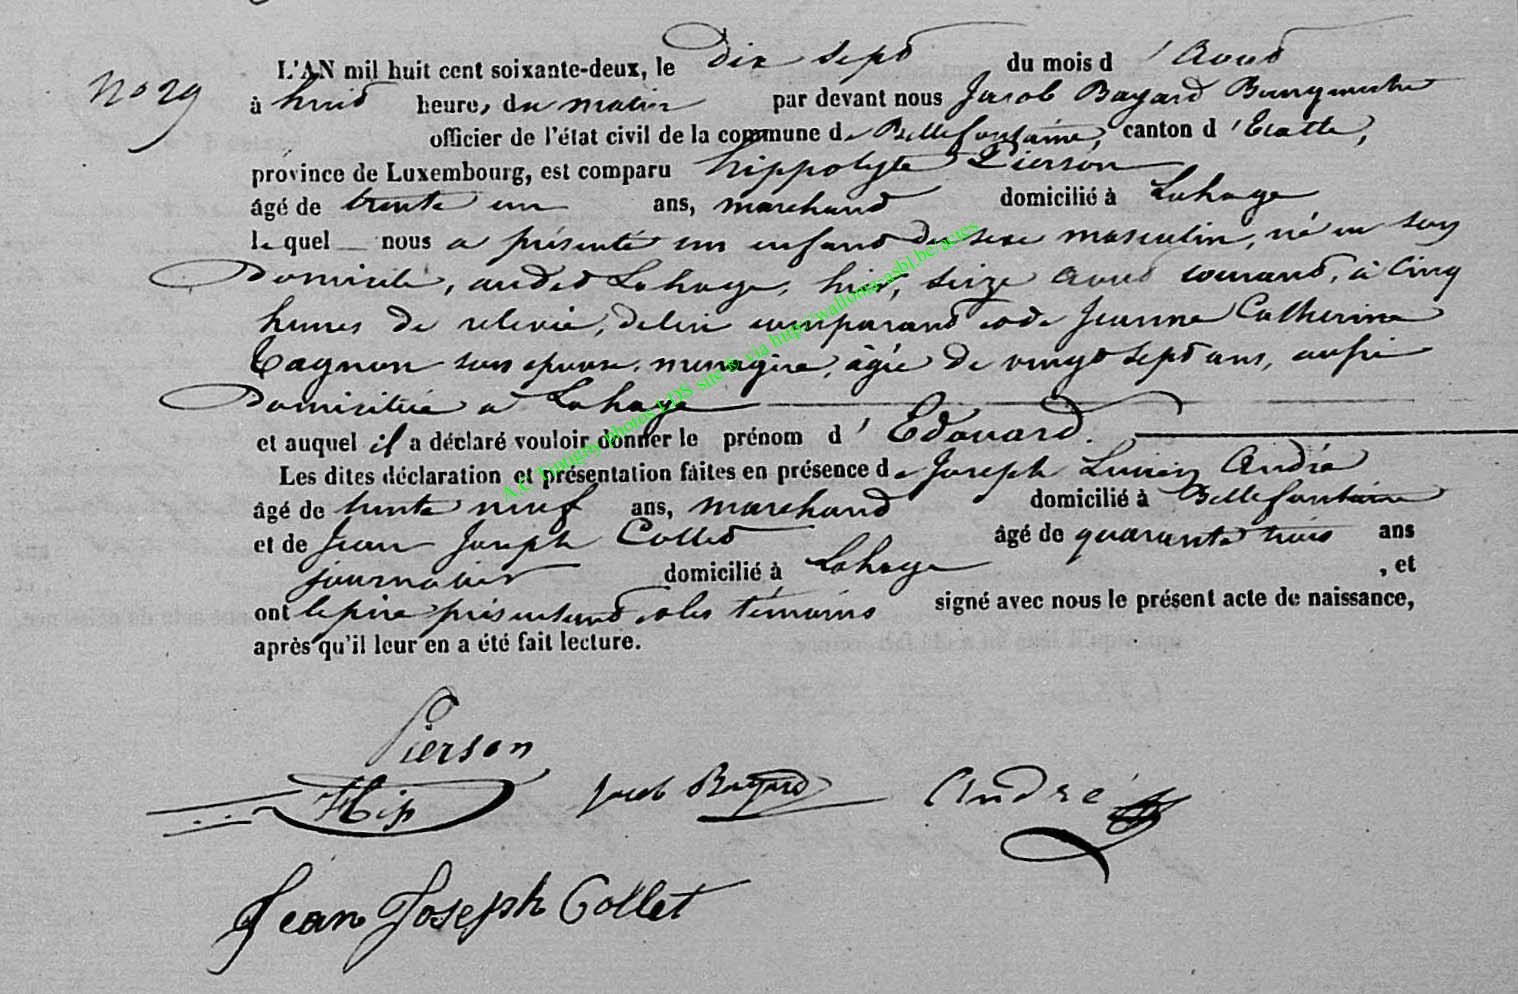 N° 29
L'AN mil huit cent soixante-deux, le dix sept du mois d'Août
à huit heures du matin par devant nous Jacob Bayard Bourgmestre
officier de l'état civil de la commune de Bellefontaine, canton d'Etalle,
province de Luxembourg, est comparu hippolyte Pierson
âgé de trente un ans, marchand domicilié à Lahage
lequel nous a présenté un enfant du sexe masculin, né en son
Domicile, audit Lahage, hier, seize Août courant, à cinq
heures de relevée, de lui comparant et de Jeanne Catherine
Gagnon son épouse, menagère, âgée de vingt sept ans, aussi
Domiciliée à Lahage
et auquel il a déclaré vouloir donner le prénom d'Edouard.
Les dites déclaration et présentation faites en présence de Joseph Lucien André
âgé de trente neuf ans, marchand domicilié à Bellefontaine
et de Jean Joseph Collet âgé de quarante trois ans
journalier domicilié à Lahage, et
ont le père présentant et les témoins signé avec nous le présent acte de naissance,
après qu'il leur en a été fait lecture.
Pierson
Hip
Jacob Bayard
André
Jean Joseph Collet
A.C Tintigny photos LDS site & via http://wallonia.asbl.be/actes